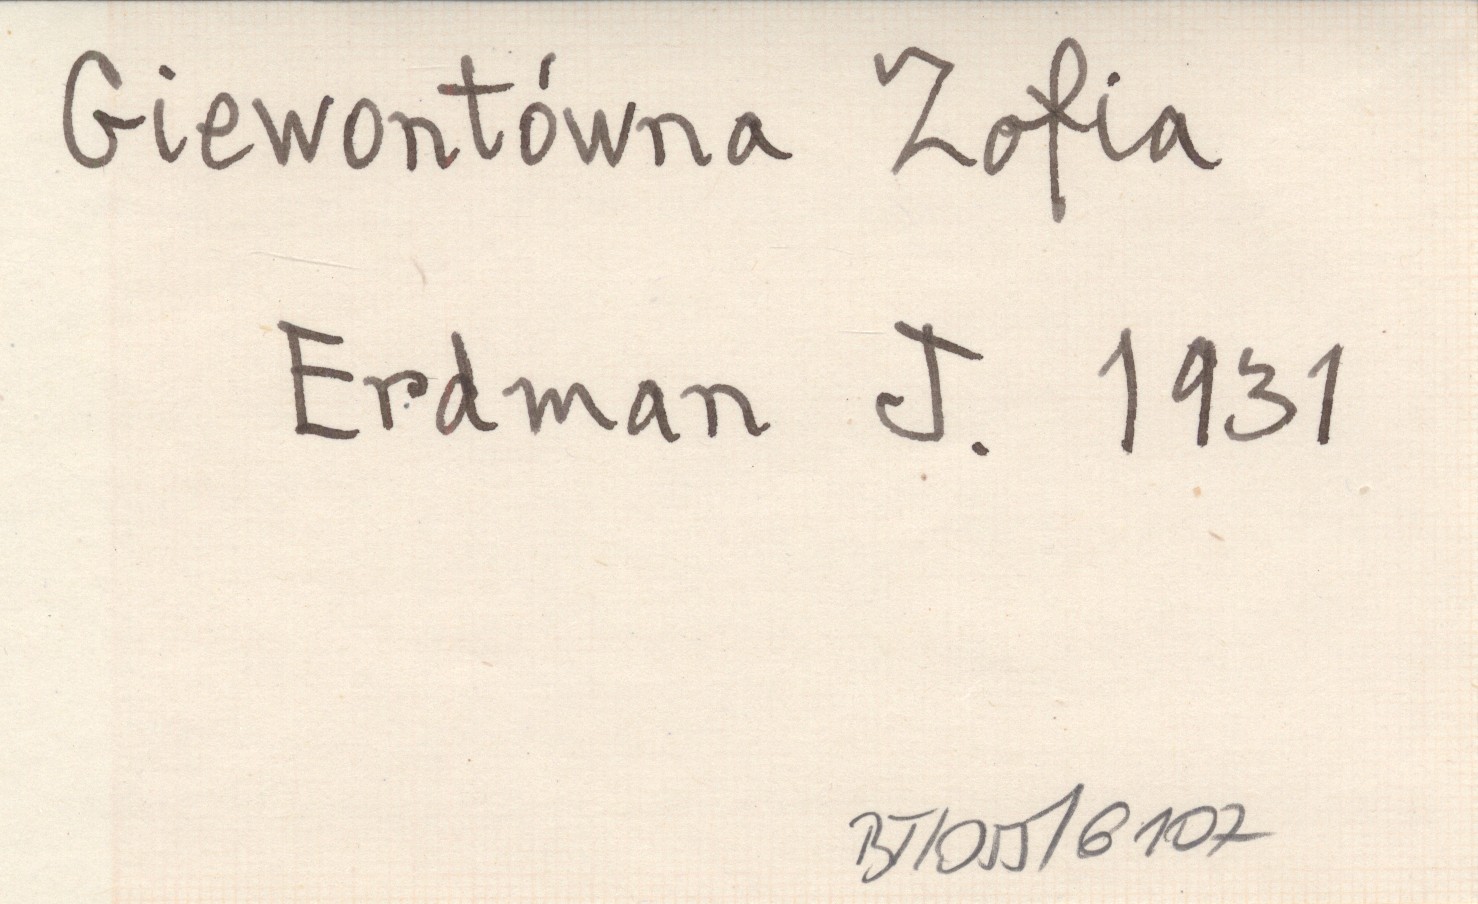 Giewontówna Zofia
Erdman J. 1931
BJ/OJJ/6107